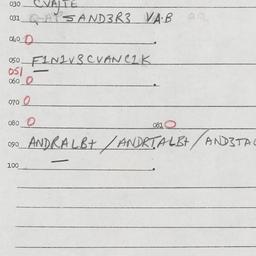 030 CVAJTE
031 SAND3R3 VA·B
040 0
050 F1N1V3CVANC1K
051
060 0
070 0
080 0 081 0
090 ANDRALB+ / ANDRTALB+ / AND3TA
100